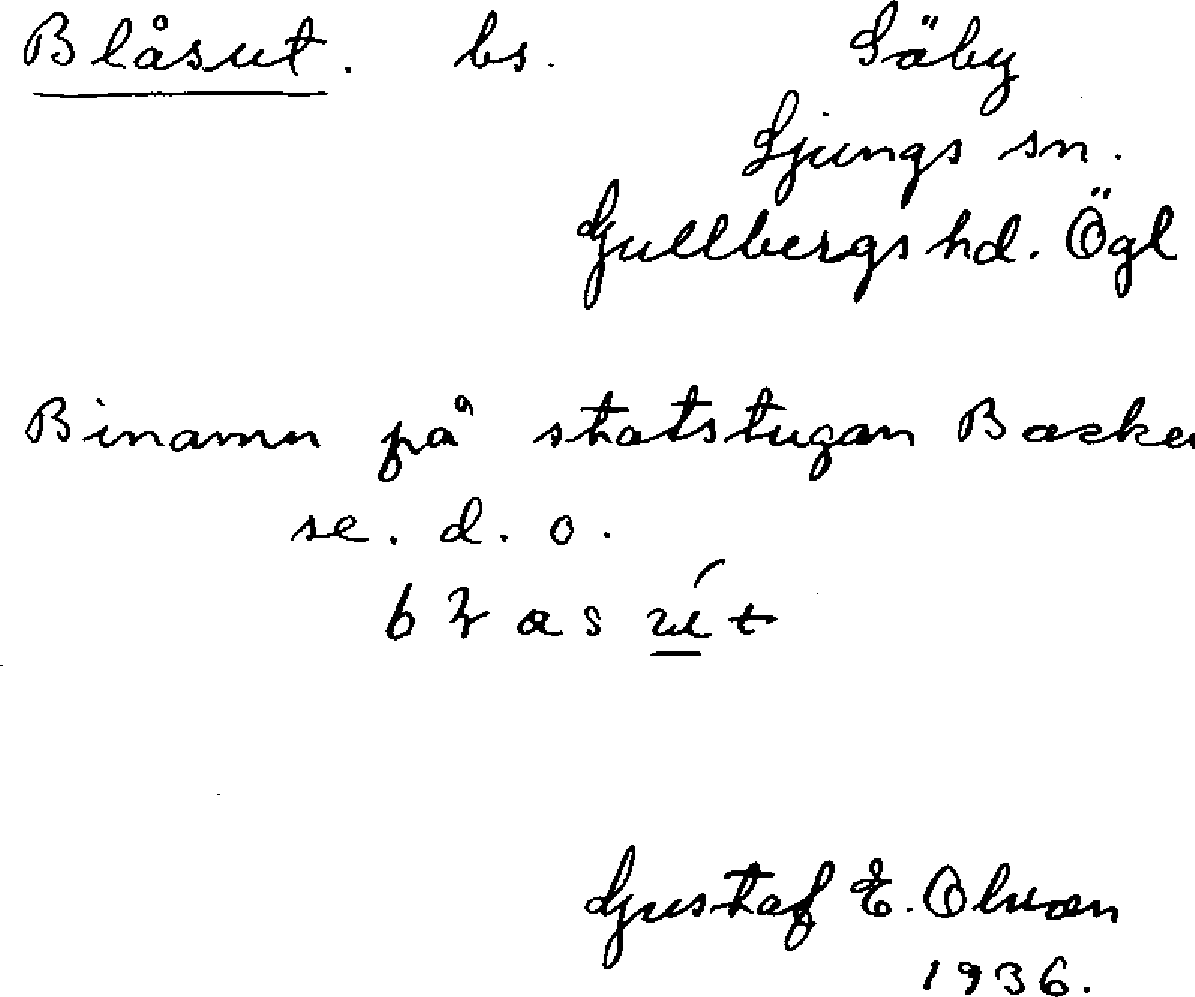 Blåsut. bs. Säby
Ljungs sn.
Gullbergs hd. Ögl
Binamn på statstugan Backen
se. d. o.
Gustaf E. Olson
1936.